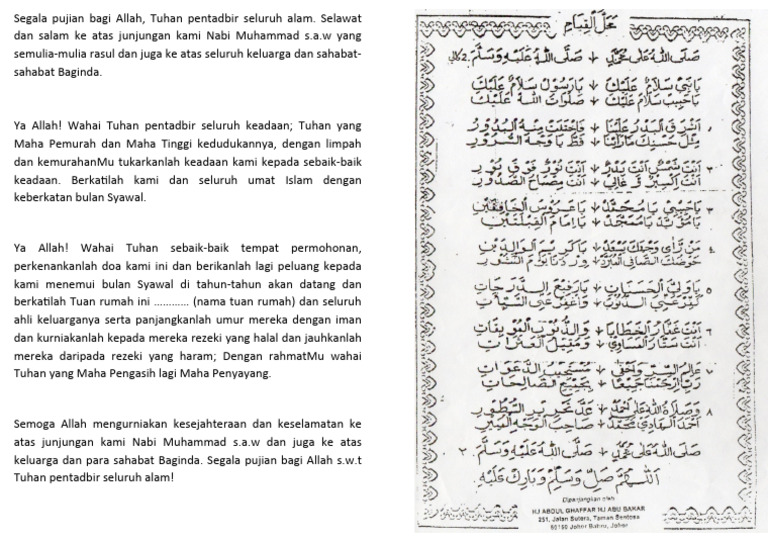 Segala pujian bagi Allah, Tuhan pentadbir seluruh alam. Selawat
dan salam ke atas junjungan kami Nabi Muhammad s.a.w yang
semulia-mulia rasul dan juga ke atas seluruh keluarga dan sahabat-
sahabat Baginda.
Ya Allah! Wahai Tuhan pentadbir seluruh keadaan; Tuhan yang
Maha Pemurah dan Maha Tinggi kedudukannya, dengan limpah
dan kemurahanMu tukarkanlah keadaan kami kepada sebaik-baik
keadaan. Berkatilah kami dan seluruh umat Islam dengan
keberkatan bulan Syawal.
Ya Allah! Wahai Tuhan sebaik-baik tempat permohonan,
perkenankanlah doa kami ini dan berikanlah lagi peluang kepada
kami menemui bulan Syawal di tahun-tahun akan datang dan
berkatilah Tuan rumah ini ............ (nama tuan rumah) dan seluruh
ahli keluarganya serta panjangkanlah umur mereka dengan iman
dan kurniakanlah kepada mereka rezeki yang halal dan jauhkanlah
mereka daripada rezeki yang haram; Dengan rahmatMu wahai
Tuhan yang Maha Pengasih lagi Maha Penyayang.
Semoga Allah mengurniakan kesejahteraan dan keselamatan ke
atas junjungan kami Nabi Muhammad s.a.w dan juga ke atas
keluarga dan para sahabat Baginda. Segala pujian bagi Allah s.w.t
Tuhan pentadbir seluruh alam!
مَحَلُّ الْقِيَامِ
صَلَّى اللهُ عَلَى مُحَمَّدْ صَلَّى اللهُ عَلَيْهِ وَسَلَّمْ
يَا نَبِي سَلَامْ عَلَيْكَ يَا رَسُوْلْ سَلَامْ عَلَيْكَ
يَا حَبِيبْ سَلَامْ عَلَيْكَ صَلَوَاتُ اللهْ عَلَيْكَ
أَشْرَقَ الْبَدْرُ عَلَيْنَا فَاخْتَفَتْ مِنْهُ الْبُدُوْرُ
مِثْلَ حُسْنِكْ مَا رَأَيْنَا قَطُّ يَا وَجْهَ السُّرُوْرِ
أَنْتَ شَمْسٌ أَنْتَ بَدْرٌ أَنْتَ نُوْرٌ فَوْقَ نُوْرٍ
أَنْتَ إِكْسِيْرٌ وَغَالِي أَنْتَ مِصْبَاحُ الصُّدُوْرِ
يَا حَبِيْبِي يَا مُحَمَّدْ يَا عَرُوْسَ الْخَافِقَيْنِ
يَا مُؤَيَّدْ يَا مُمَجَّدْ يَا إِمَامَ الْقِبْلَتَيْنِ
مَنْ رَأَى وَجْهَكَ يَسْعَدْ يَا كَرِيْمَ الْوَالِدَيْنِ
حَوْضُكَ الصَّافِي الْمُبَرَّدْ وِرْدُنَا يَوْمَ النُّشُوْرِ
يَا وَلِيَّ الْحَسَنَاتِ يَا رَفِيْعَ الدَّرَجَاتِ
كَفِّرْ عَنِّي الذُّنُوْبَ وَاغْفِرْ عَنِّي السَّيِّئَاتِ
أَنْتَ غَفَّارُ الْخَطَايَا وَالذُّنُوْبِ الْمُوْبِقَاتِ
أَنْتَ سَتَّارُ الْمَسَاوِي وَمُقِيْلُ الْعَثَرَاتِ
عَالِمُ السِّرِّ وَأَخْفَى مُسْتَجِيْبُ الدَّعَوَاتِ
رَبِّ ارْحَمْنَا جَمِيْعًا بِجَمِيْعِ الصَّالِحَاتِ
وَصَلَاةُ اللهِ عَلَى أَحْمَدْ عَدَّ تَحْرِيْرِ السُّطُوْرِ
أَحْمَدُ الْهَادِي مُحَمَّدْ صَاحِبُ الْوَجْهِ الْمُنِيْرِ
صَلَّى اللهُ عَلَى مُحَمَّدْ صَلَّى اللهُ عَلَيْهِ وَسَلَّمْ ٢
اَللّٰهُمَّ صَلِّ وَسَلِّمْ وَبَارِكْ عَلَيْهِ
Dipanjangkan oleh:
HJ ABDUL GHAFFAR HJ ABU BAKAR
251, Jalan Sutera, Taman Sentosa
80150 Johor Bahru, Johor